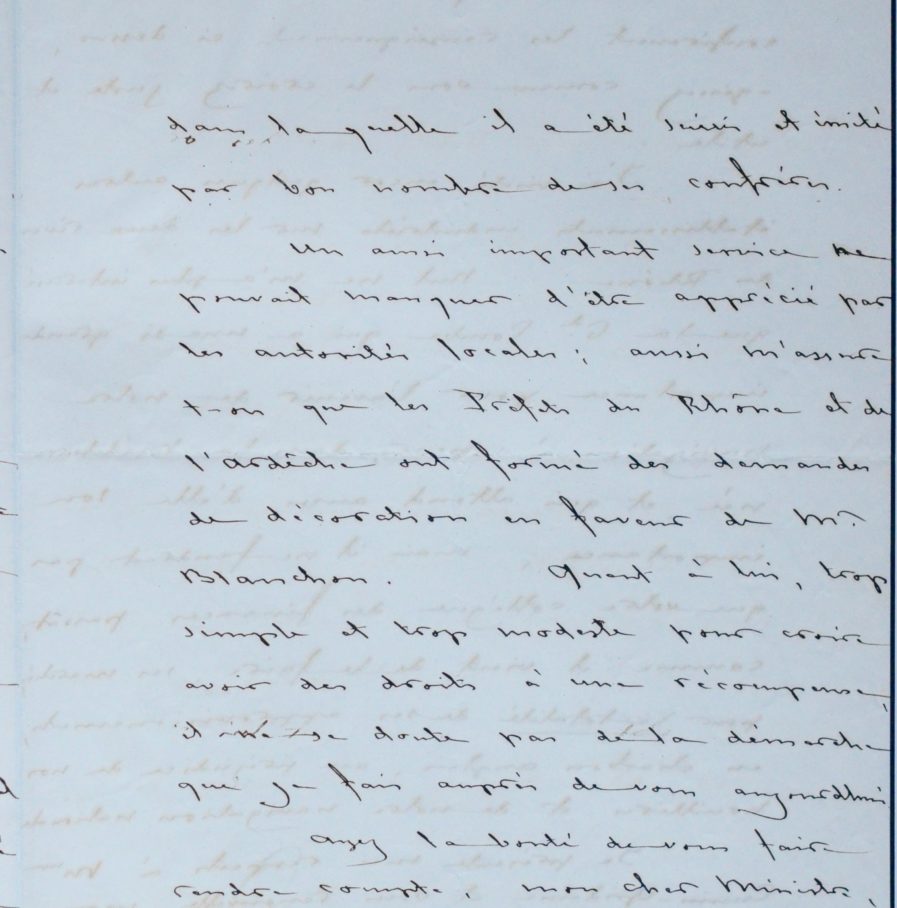 dans laquelle il a été suivi et imité
par bon nombre de ses confrères.
Un aussi important service ne
pouvait manquer d'être apprécié par
les autorités locales ; aussi m'assure
t-on que les Préfets du Rhône et de
l'Ardèche ont formé des demandes
de décoration en faveur de Mr.
Blanchon. Quant à lui, trop
simple et trop modeste pour croire
avoir des droits à une récompense,
il ne se doute pas de la démarche
que je fais auprès de vous aujourd'hui
Ayez la bonté de vous faire
rendre compte, mon cher Ministre,